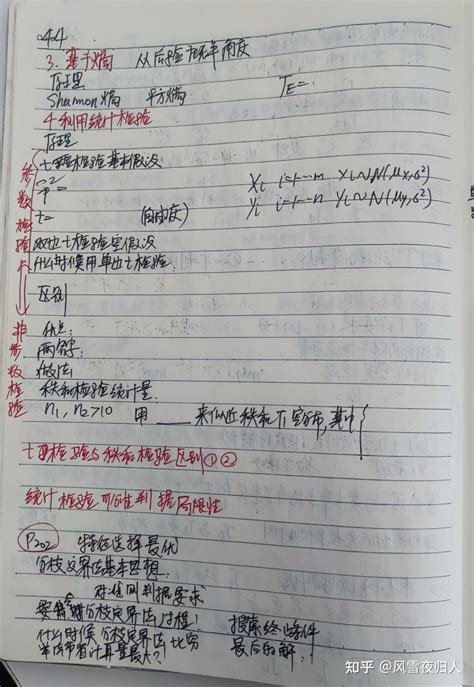 44
3. 基于熵 从后验概率角度
原理
Shannon熵 平方熵 JE=
4 利用统计检验
原理
t-检验基本假设
Sp²= Xi i=1…n Xi~N(μx,σ²)
t= (自由度) Yi i=1…m Yi~N(μy,σ²)
双边t检验空假设
什么时候用单边t检验:
区别
参数检验
非参数检验
优点:
两字:
做法
秩和检验统计量:
n1, n2>10 用 ___ 来似近秩和T1分布,其中{
t-检验与秩和检验区别①②
统计检验可分性判据局限性
P202 特征选择最优
分枝定界法基本思想:
对准则判据要求
分枝定界法过程! 搜索终止条件
什么时候分枝定界法比穷 最后的解:
举法节省计算量最大?
知乎 @风雪夜归人